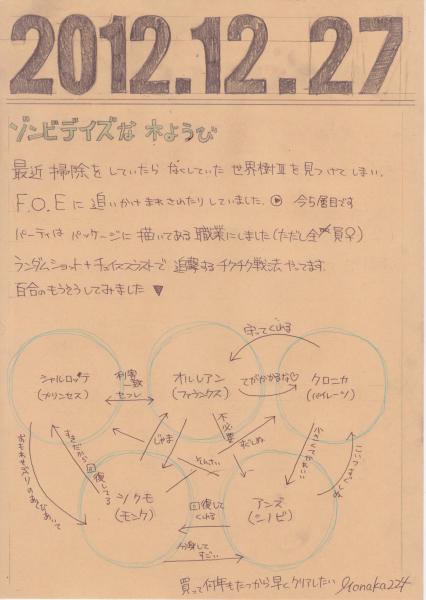 2012.12.27
ゾンビデイズな 木ようび
最近 掃除を していたら なくしていた 世界樹Ⅲを 見つけて しまい、
F.O.Eに 追いかけ まわされたり していました。 今5層目です
パーティは パッケージに 描いてある 職業にしました(ただし全員♀)
ランダムショット+チェイスブラストで 追撃する チクチク戦法 やってます。
百合のもうそう してみました
守ってくれる
シャルロッテ
(プリンセス)
利害
一致
セフレ
オルレアン
(ファランクス)
てがかかるな♡
クロニカ
(パイレーツ)
不必要
じゃま
すきだから
回復してる
シノクモ
(モンク)
回復して
くれる
アンズ
(シノビ)
分身して
すごい
買って何年もたつから 早くクリアしたい